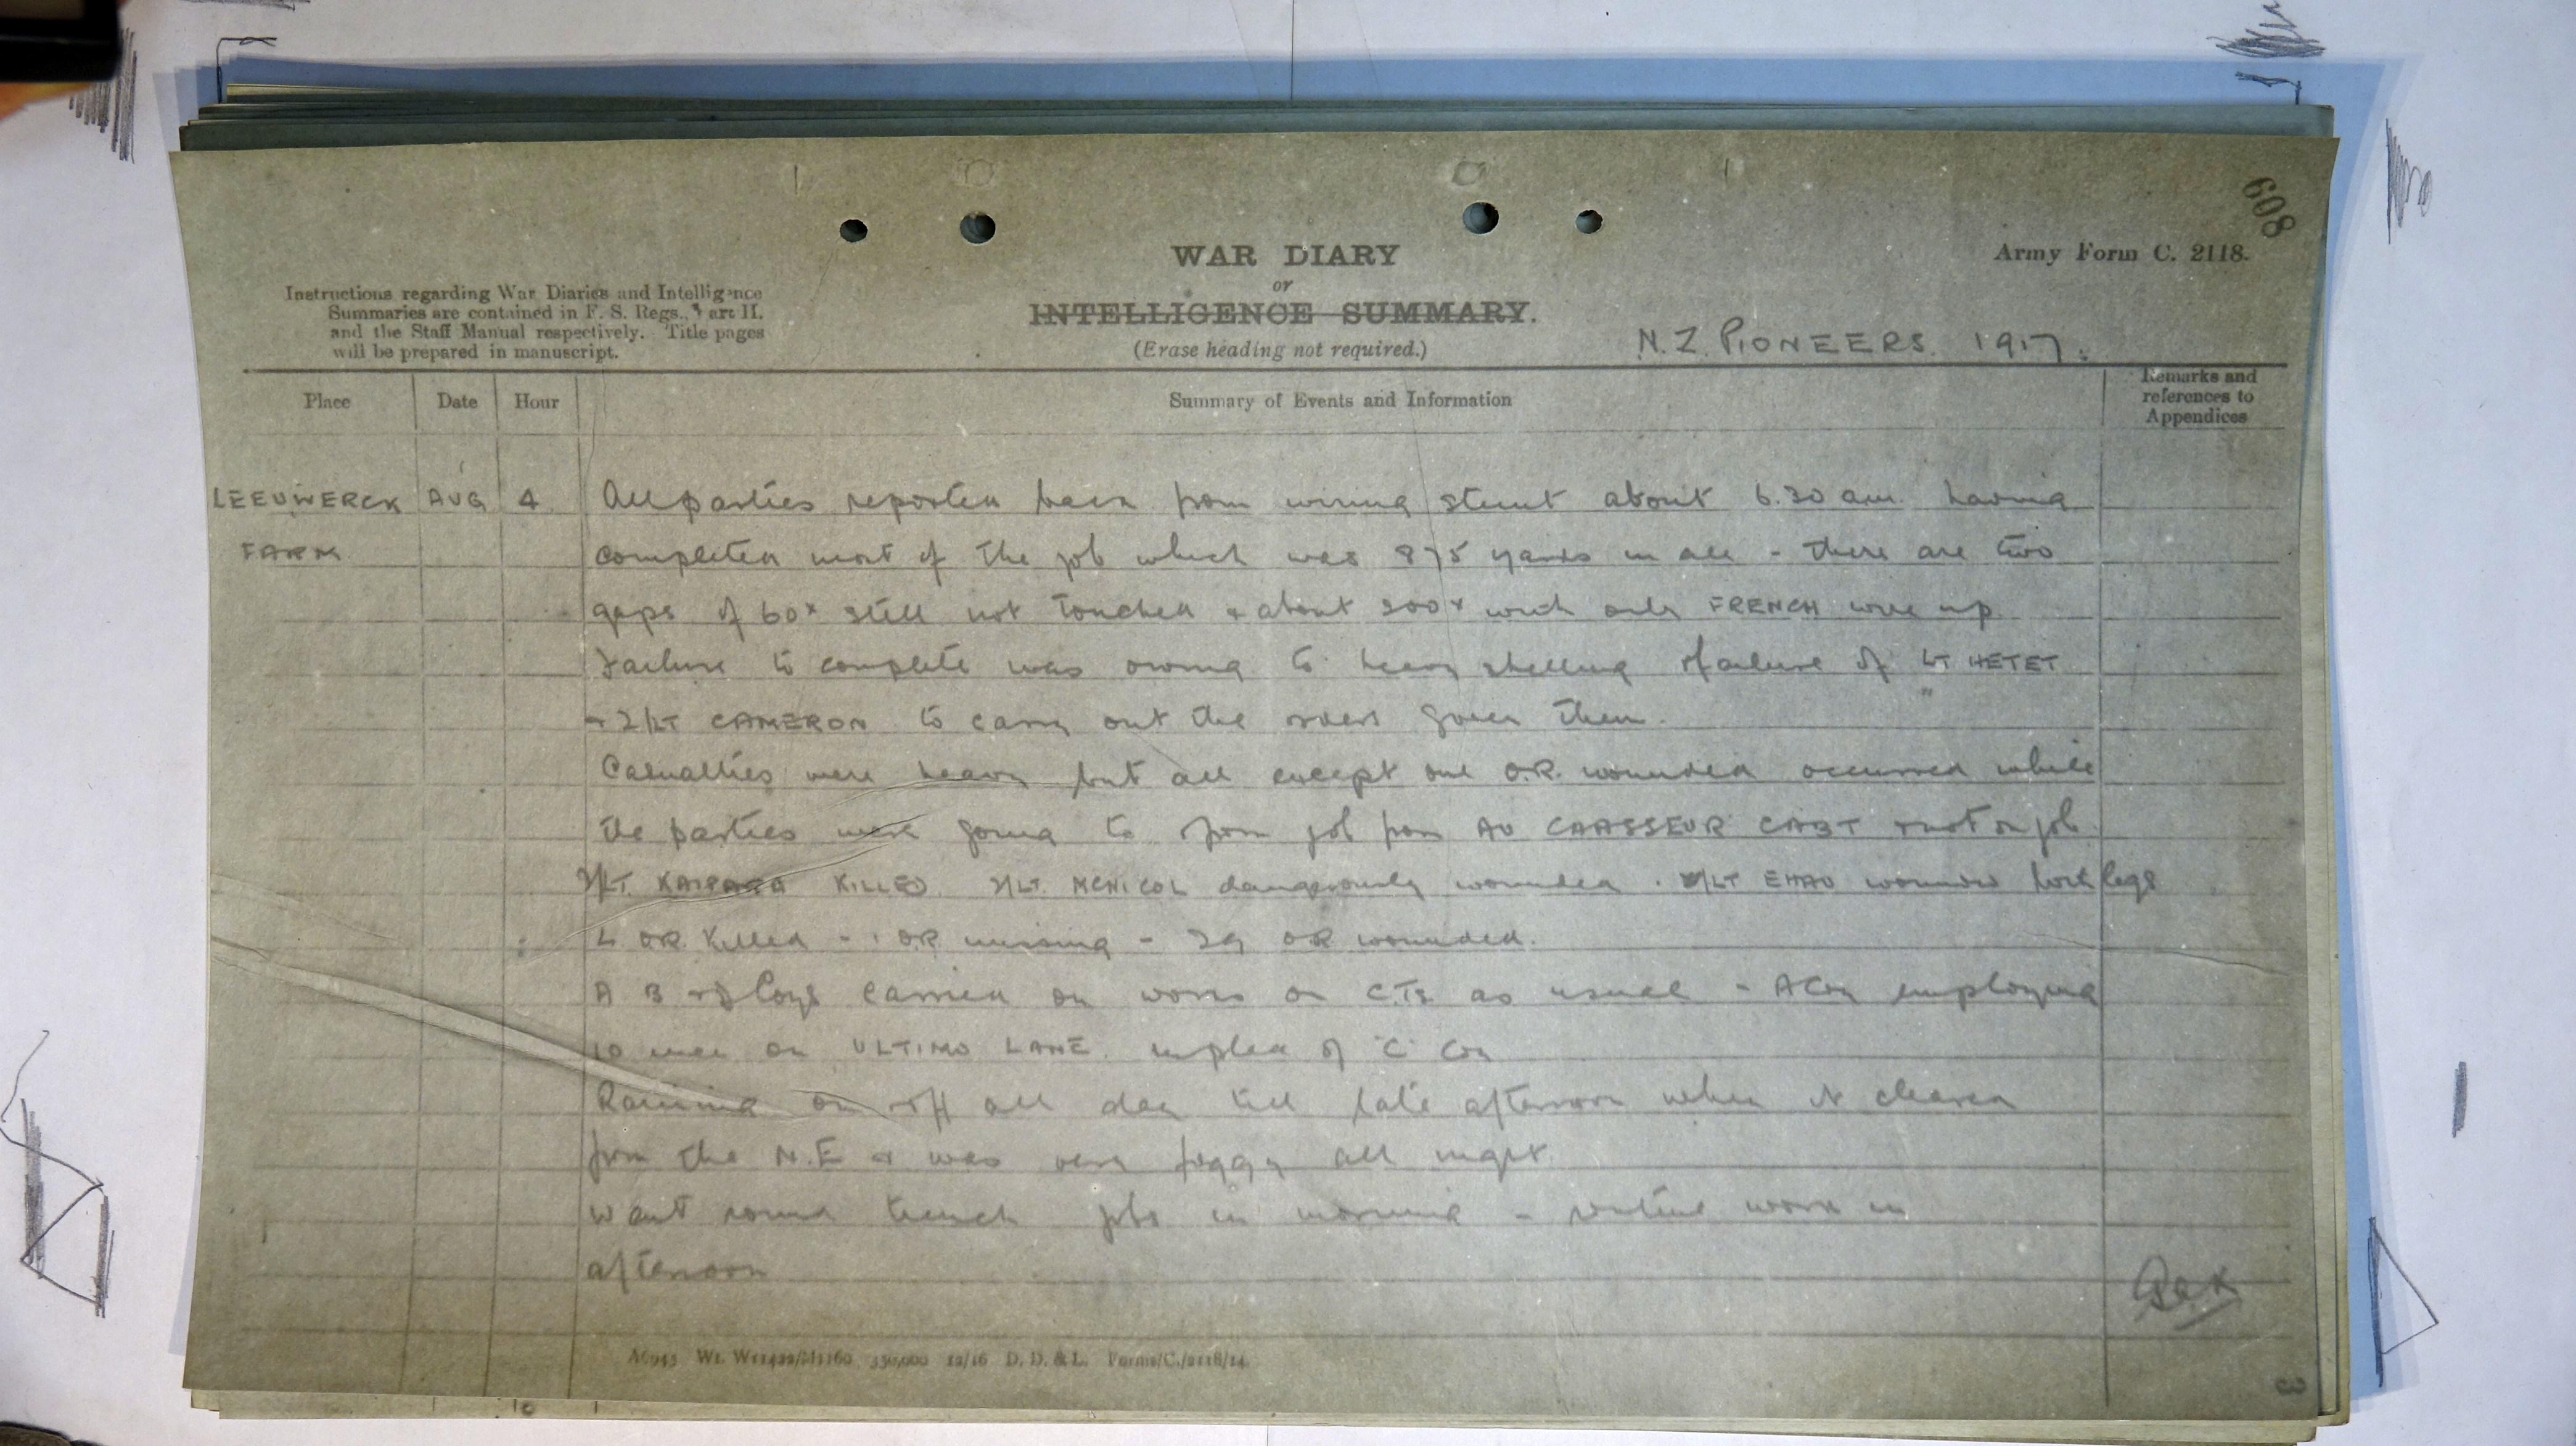 608
WAR DIARY
or
INTELLIGENCE SUMMARY.
(Erase heading not required.)
Army Form C. 2118.
Instructions regarding War Diaries and Intelligence
Summaries are contained in F. S. Regs., Part II.
and the Staff Manual respectively. Title pages
will be prepared in manuscript.
N.Z. PIONEERS. 1917.
Place Date Hour Summary of Events and Information Remarks and
references to
Appendices
LEEUWERCK AUG 4 All parties reported back from wiring stunt about 6.30 am. having
FARM completed most of the job which was 875 yards in all - there are two
gaps of 60x still not touched & about 200x with only FRENCH wire up.
Failure to complete was owing to heavy shelling & failure of LT HETET
& 2/LT CAMERON to carry out the orders given them.
Casualties were heavy but all except one O.R. wounded occurred while
the parties were going to & from job from AU CHASSEUR CABT & not on job.
2/LT. KAIPARA KILLED. 2/LT. MCNICOL dangerously wounded. 2/LT EHAU wounded both legs
4 OR Killed - 1 OR missing - 29 OR wounded.
A B & D Coys carried on work on C.Ts as usual - A Coy employing
10 men on ULTIMO LANE. in place of C Coy
Raining on & off all day till late afternoon when it cleared
from the N.E & was very foggy all night.
Went round trench jobs in morning - routine work in
afternoon
350,000 12/16 D. D. & L. Forms/C./2118/14.
3